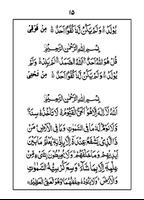 ۱۵
يُوْلَدْ ۙ وَلَمْ يَكُنْ لَّهٗ كُفُوًا اَحَدٌ ۝ مِنْ فَوْقِیْ
بِسْمِ اللهِ الرَّحْمٰنِ الرَّحِيْمِ
قُلْ هُوَ اللهُ اَحَدٌ ۝ اَللهُ الصَّمَدُ ۝ لَمْ يَلِدْ ۙ وَلَمْ
يُوْلَدْ ۙ وَلَمْ يَكُنْ لَّهٗ كُفُوًا اَحَدٌ ۝ مِنْ تَحْتِیْ
بِسْمِ اللهِ الرَّحْمٰنِ الرَّحِيْمِ
اَللهُ لَآ اِلٰهَ اِلَّا هُوَ الْحَیُّ الْقَيُّوْمُ لَا تَاْخُذُهٗ سِنَةٌ
وَّلَا نَوْمٌ لَهٗ مَا فِی السَّمٰوٰتِ وَمَا فِی الْاَرْضِ مَنْ
ذَا الَّذِیْ يَشْفَعُ عِنْدَهٗ اِلَّا بِاِذْنِهٖ يَعْلَمُ مَا
بَيْنَ اَيْدِيْهِمْ وَمَا خَلْفَهُمْ وَلَا يُحِيْطُوْنَ بِشَیْءٍ
مِّنْ عِلْمِهٖٓ اِلَّا بِمَا شَآءَ وَسِعَ كُرْسِيُّهُ السَّمٰوٰتِ
وَالْاَرْضَ وَلَا يَئُوْدُهٗ حِفْظُهُمَا وَهُوَ الْعَلِیُّ الْعَظِيْمُ